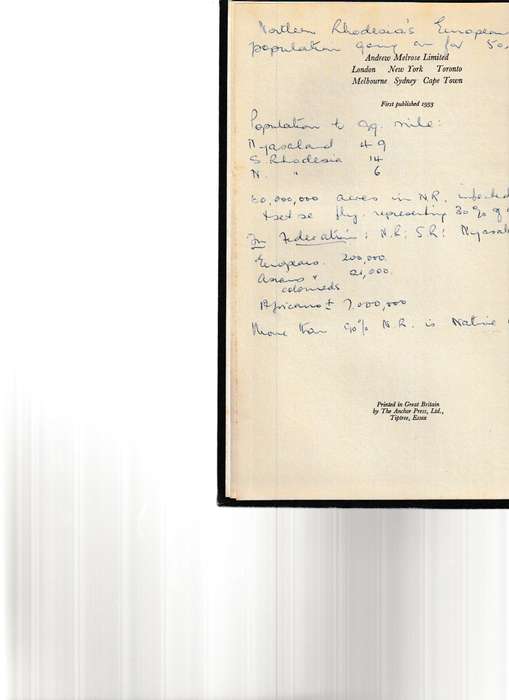 Northern Rhodesia's European
population going on for 50,
Andrew Melrose Limited
London New York Toronto
Melbourne Sydney Cape Town
First published 1953
Population to sq. mile:
Nyasaland 49
S Rhodesia 14
N. " 6
60,000,000 acres in N.R. infected
tsetse fly. representing 30% of
In Federation: N.R; S.R; Nyasal
Europeans. 200,000.
Asians &
coloureds 21,000.
Africans ± 7,000,000
More than 90% N.R. is Native
Printed in Great Britain
by The Anchor Press, Ltd.,
Tiptree, Essex